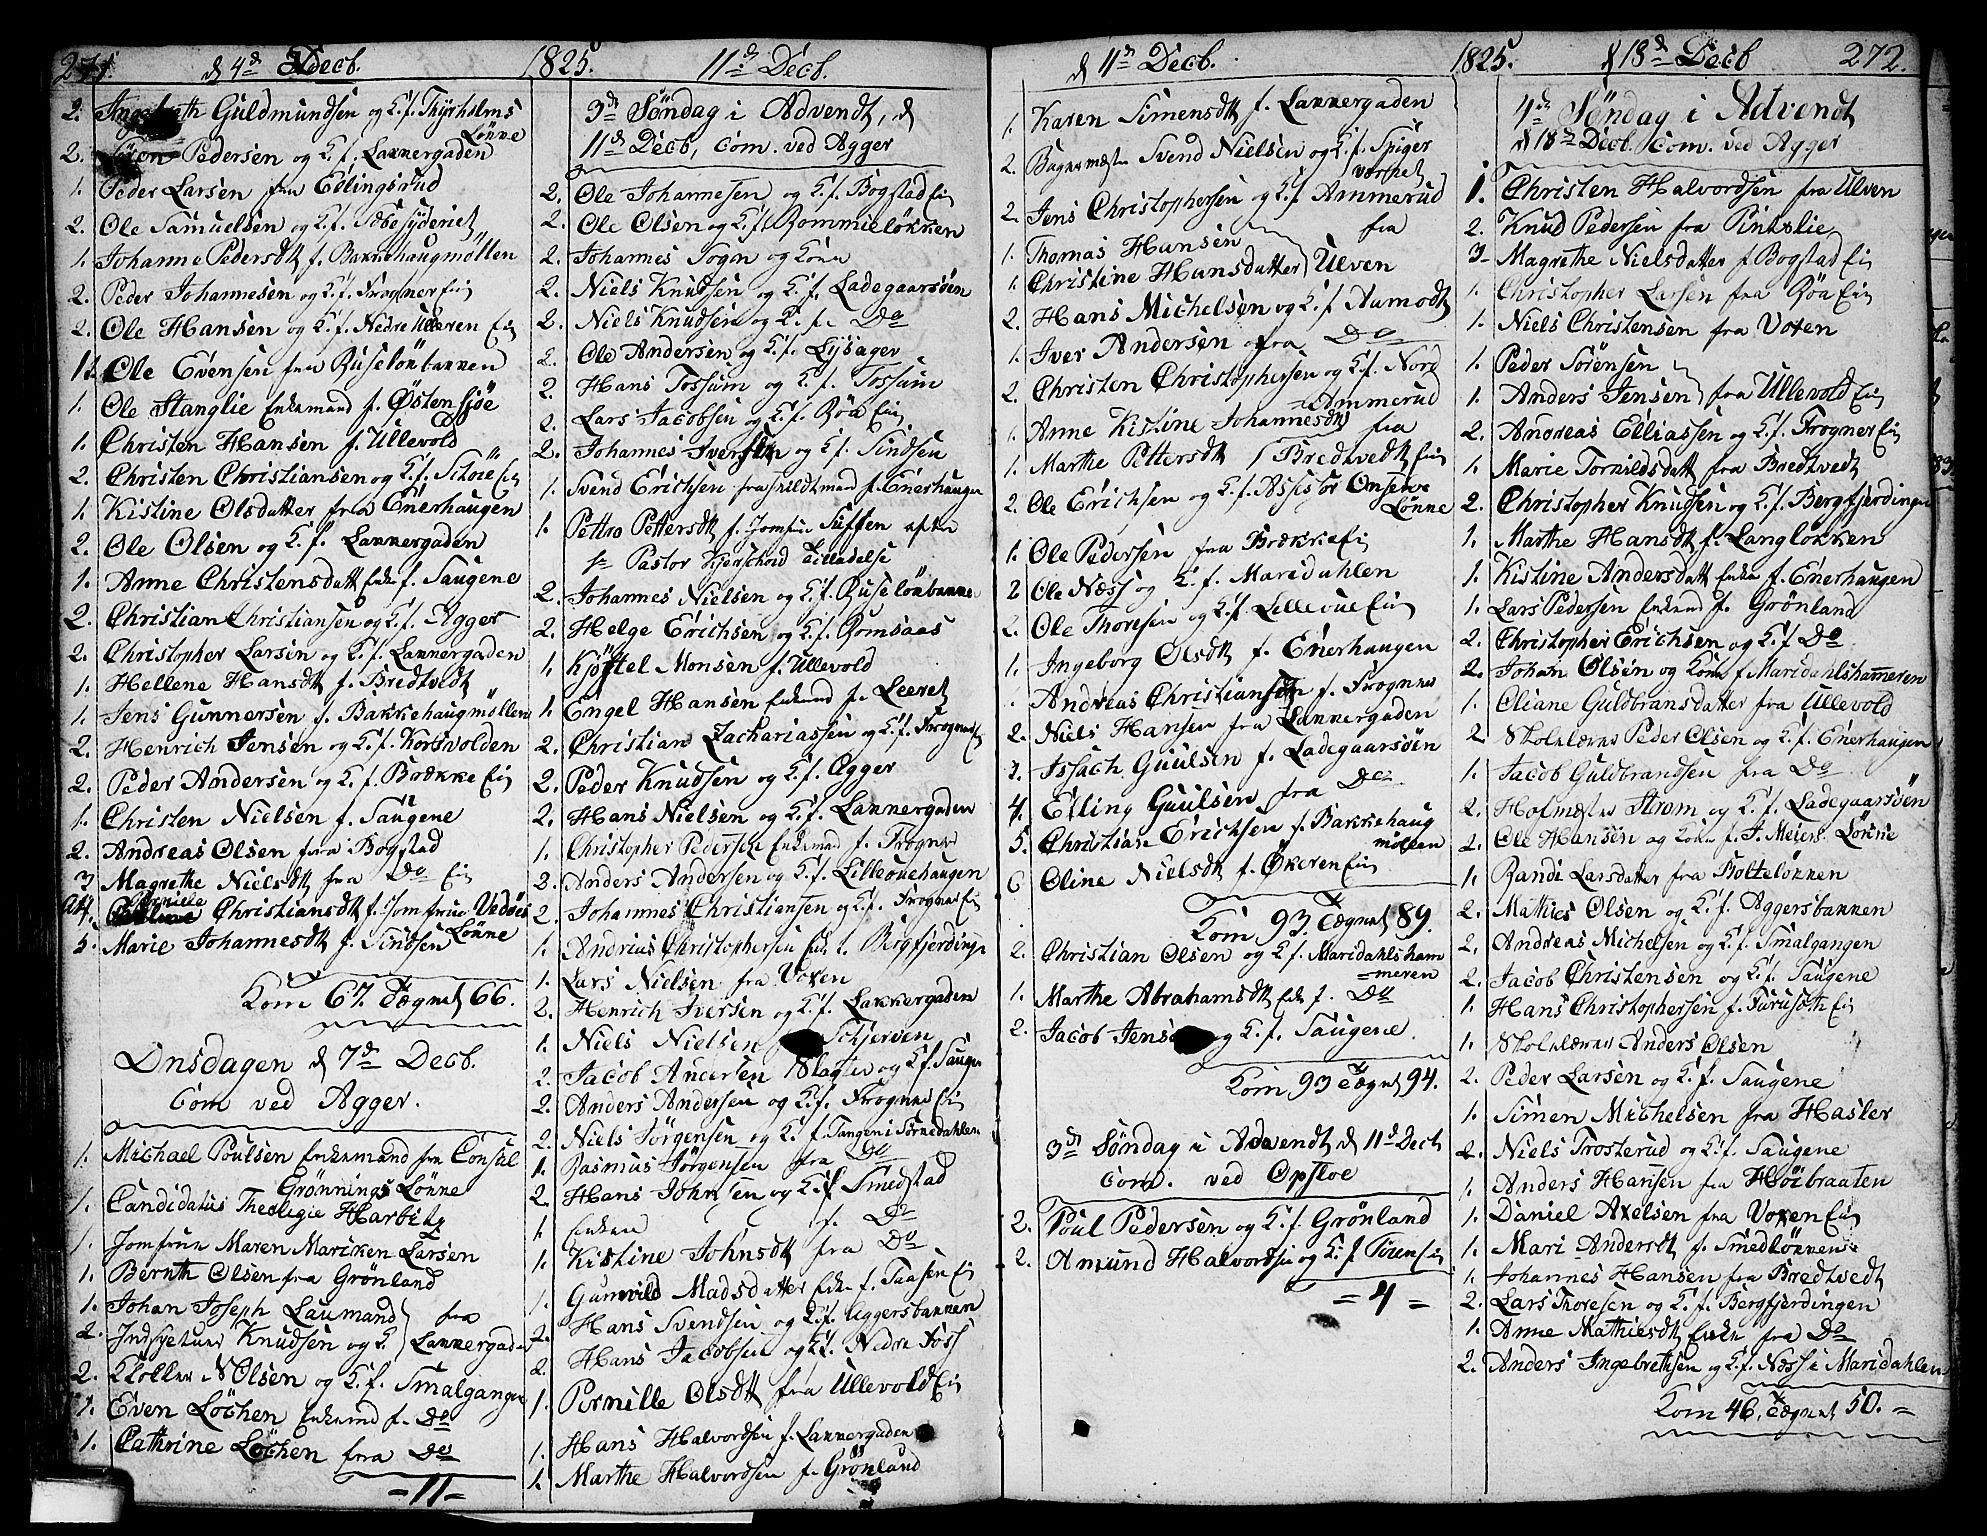 271. d 4de Decb. 1825.
2. Ingebreth Guldmundsen og K. f. Thyrholms
Løkke
2. Søren Pedersen og K. f. Lakkergaden
1. Peder Larsen fra Ellingsrud
2. Ole Samuelsen og K. f.
1. Johanne Pedersdtt f. Bakkehaugmøllen
2. Peder Johannesen og K. f. Frogner Ei
2. Ole Hansen og K. f. Nedre Ulleren Ei
1. Ole Evensen fra Ruseløkbakken
1. Ole Stanglie Enkemand f. Østensjøe
1. Christen Hansen f. Ullevold
2. Christen Christiansen og K. f. Ei
1. Kistine Olsdatter fra Enerhaugen
2. Ole Olsen og K. f. Lakkergaden
1. Anne Christensdatt Enke f. Saugene
2. Christian Christiansen og K. f. Agger
2. Christopher Larsen og K. f. Lakkergaden
1. Hellene Hansdtt f. Bredtvedt
1. Jens Gunnersen f. Bakkehaugmøllen
2. Henrich Jensen og K. f. Korsvolden
2. Peder Andersen og K. f. Brække Ei
1. Christen Nielsen f. Saugene
2. Andreas Olsen fra Bogstad
3 Magrethe Nielsdtt fra Do Ei
4. Pernille Christiansdtt f. Jomfrue
Løkke
5. Marie Johannesdtt f. Sindsen
Kom 67. Tegnet 66.
Onsdagen d 7de Decb.
Com ved Agger.
1. Michael Poulsen Enkemand fra Consul
Grønnings Løkke
1. Candidatus Theologie Harbitz
1. Jomfrue Maren Mariken Larsen
1. Bernth Olsen fra Grønland
1. Johan Joseph Laumand fra
2. Knudsen og K. Lakkergaden
2. N Olsen og K. f. Smalgangen
1. Even Løchen Enkemd f. Do
1. Cathrine Løchen fra Do
= 11 =
11de Decb.
3de Søndag i Advendt, d
11de Decb, Com. ved Agger
2. Ole Johannesen og K. f. Bogstad Ei
2. Ole Olsen og K. f. Rommieløkken
2. Johannes Sogn og Kone
2. Niels Knudsen og K. f. Ladegaarsøen
2. Niels Knudsen og K. f. Do
2. Ole Andersen og K. f. Lysager
2. Hans Fossum og K. f. Fossum
2. Lars Jacobsen og K. f. Røa Ei
2. Johannes Iversen og K. f. Sindsen
1. Svend Erichsen fraskildtmand f. Enerhaugen
1. Pettro Pettersdtt f. Jomfru efter
Pastor Kjerschow Tilladelse
2. Johannes Nielsen og K. f. Ruseløkbakken
2. Helge Erichsen og K. f. Romsaas
1. Kjøstel Monsen f. Ullevold
1. Engel Hansen Enkemd f. Leeret
2. Christian Zachariassen og K. f. Frogner Ei
2. Peder Knudsen og K. f. Agger
2. Hans Nielsen og K. f. Lakkergaden
1. Christopher Pedersen Enkemd f. Frogner
2. Anders Andersen og K. f. Lilleouehaugen
2. Johannes Christiansen og K. f. Frogner Ei
1. Andrias Christophersen Enk. f. Bergfjerdingen
1. Lars Nielsen fra Voxen
2. Henrich Iversen og K. f. Lakkergaden
1. Niels Nielsen Schjerven
2. Jacob Andersen Slagter og K. f. Saugen
2. Anders Andersen og K. f. Frogner Ei
2. Niels Jørgensen og K. f. Tangen i Sørkedahlen
1. Rasmus Jørgensen fra Do
2. Hans Johnsen og K. f. Smedstad
1 Enken f. Do
1. Kistine Johnsdtt fra Do
1. Gunnild Madsdatter Enke f. Taasen Ei
2. Hans Svendsen og K. f. Aggersbakken
2. Hans Jacobsen og K. f. Nedre Foss
1. Pernille Olsdtt fra Ullevold Ei
1. Hans Halvordsen f. Lakkergaden
1. Marthe Halvordsen f. Grønland
d 11de Decb. 1825.
1. Karen Simensdtt f. Lakkergaden
2. Svend Nielsen og K. f. Spiger
værket
2. Jens Christophersen og K. f. Ammerud
1. Thomas Hansen fra
1. Christine Hansdatter Ulven
2. Hans Michelsen og K. f. Aamodt
1. Iver Andersen fra Do
2. Christen Christophersen og K. f. Nord
=Ammerud
1. Anne Kistine Johannesdtt fra
1. Marthe Pettersdtt Bredtvedt Ei
2. Ole Erichsen og K. f. Assessor
Løkke
1. Ole Pedersen fra Brække Ei
2 Ole Næss og K. f. Maridahlen
2. Ole Thoresen og K. f. Lilleoue Ei
1. Ingeborg Olsdtt f. Enerhaugen
1. Andreas Christiansen f. Frogner
2. Niels Hansen fra Lakkergaden
3. Issach Guulsen f. Ladegaarsøen
4. Elling Guulsen fra Do
5. Christian Erichsen f. Bakkehaug
møllen
6 Oline Nielsdtt f. Økeren Ei
Kom 93. Tegnet 89.
2. Christian Olsen og K. f. Maridahlsham
=meren
1. Marthe Abrahamsdtt Enk f. Do
2. Jacob Jensen og K. f. Saugene
Kom 93 Tegnet 94.
3de Søndag i Advendt d 11de Decb
Com. ved Opsloe
2. Poul Pedersen og K. f. Grønland
2. Amund Halvordsen og K. f. Ei
= 4 =
d 18de Decb 272.
4de Søndag i Advendt
d 18de Decb. Com. ved Agger
1. Christen Halvordsen fra Ulven
2. Knud Pedersen fra
3 Magrethe Nielsdatter f Bogstad Ei
1. Christopher Larsen fra Røa Ei
1. Niels Christensen fra Voxen
1. Peder Sørensen
1. Anders Jensen fra Ullevold Ei
2. Andreas Elliassen og K. f. Frogner Ei
1. Marie Torkildsdatt fra Bredtvedt
2. Christopher Knudsen og K. f. Bergfjerdingen
1. Marthe Hansdt f. Langløkken
1. Kistine Andersdatt Enke f. Enerhaugen
1. Lars Pedersen Enkemd f. Grønland
2. Christopher Erichsen og K. f. Do
2. Johan Olsen og Kone f. Maridahlshammeren
1. Oliane Guldbransdatter fra Ullevold
2. Skolelærer Peder Olsen og K. f. Enerhaugen
1. Jacob Guldbrandsen fra Do
2. Strøm og K. f. Ladegaarsøen
2. Ole Hansen og Kone f. J. Meiers Løkke
1. Randi Larsdatter fra Bolteløkken
2. Mathies Olsen og K. f. Aggersbakken
2. Andreas Michelsen og K. f. Smalgangen
2. Jacob Christensen og K. f. Saugene
1. Hans Christophersen f. Furuseth Ei
1. Skolelærer Anders Olsen
2. Peder Larsen og K. f. Saugene
1. Simen Michelsen fra Hasler
2. Niels Trosterud og K. f. Saugene
1. Anders Hansen fra Høibraaten
1. Daniel Axelsen fra Voxen Ei
1. Mari Andersdt f. Smedløkken
1. Johannes Hansen fra Bredtvedt
2. Lars Thoresen og K. f. Bergfjerdingen
1. Anne Mathiesdtt Enke fra Do
2. Anders Ingebrethsen og K. f. Næss i Maridahlen
Kom 46. Tegnet 50. =